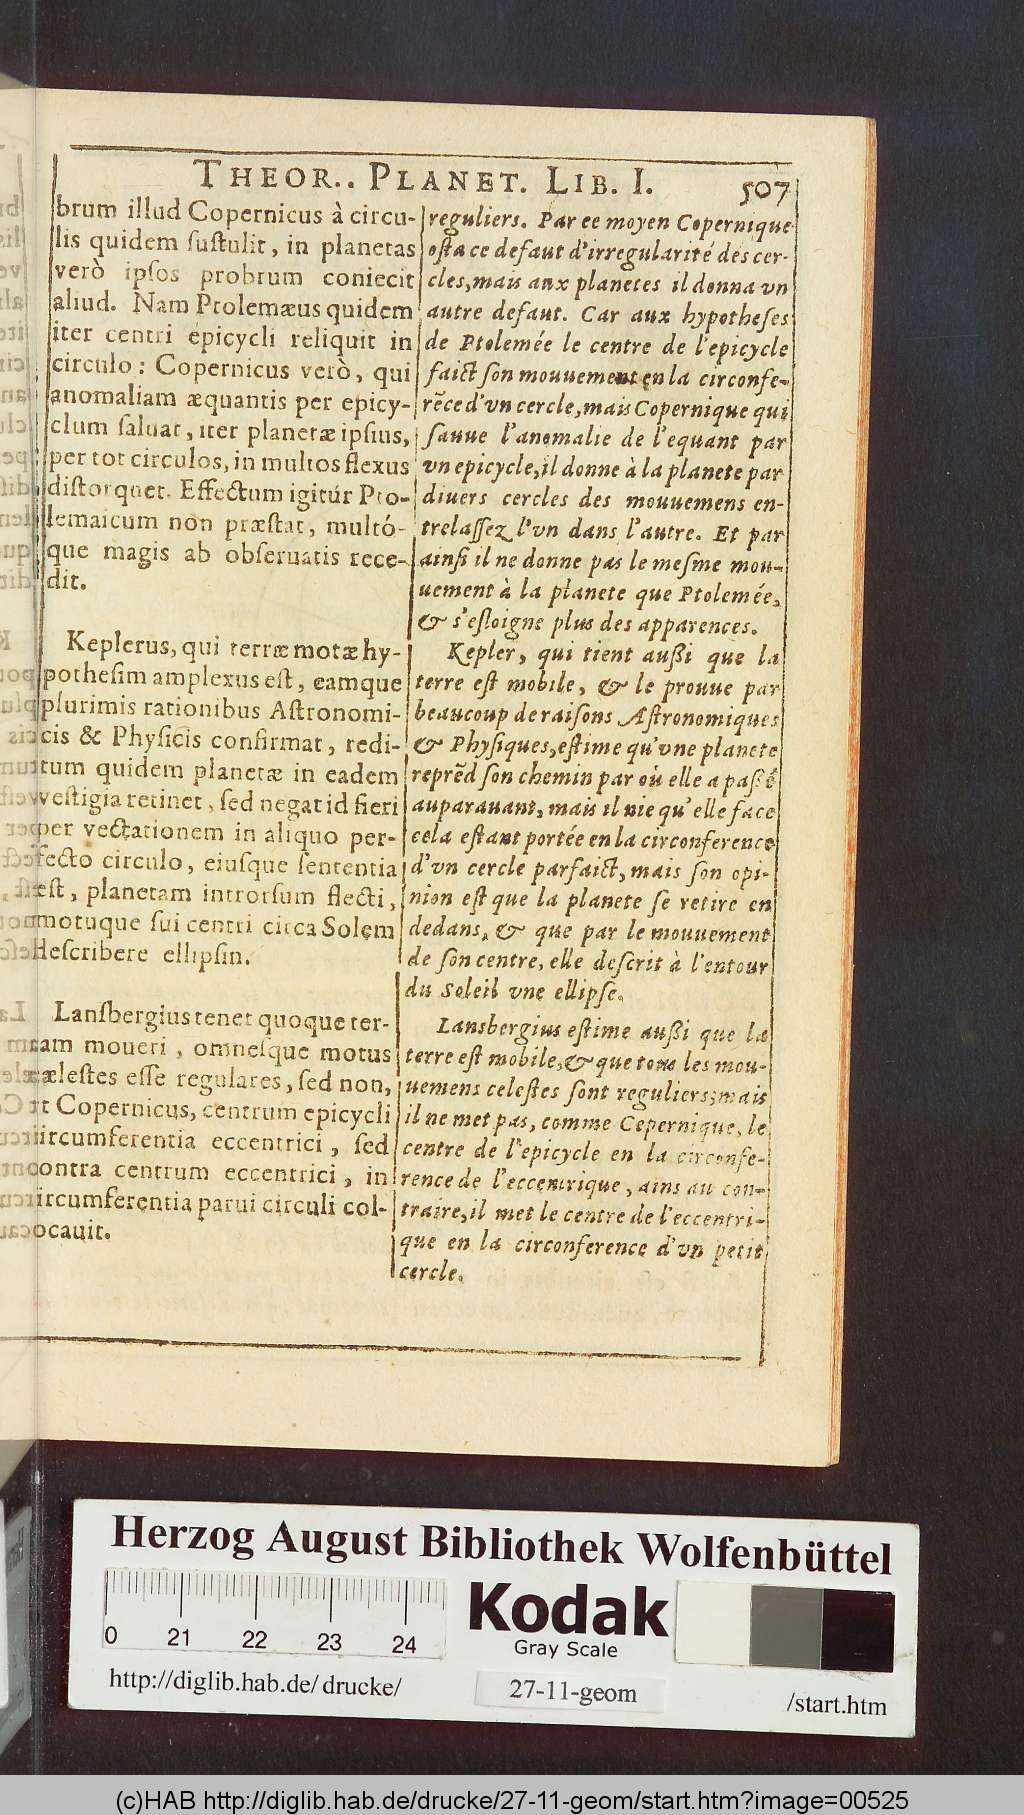 THEOR.. PLANET. LIB. I. 507
brum illud Copernicus à circu-
lis quidem ſuſtulit, in planetas
verò ipſos probrum coniecit
aliud. Nam Ptolemæus quidem
iter centri epicycli reliquit in
circulo: Copernicus verò, qui
anomaliam æquantis per epicy-
clum ſaluat, iter planetæ ipſius,
per tot circulos, in multos flexus
diſtorquet. Effectum igitúr Pto-
lemaicum non præſtat, multó-
que magis ab obſeruatis rece-
dit.
Keplerus, qui terræ motæ hy-
potheſim amplexus eſt, eamque
plurimis rationibus Aſtronomi-
cis & Phyſicis confirmat, redi-
tum quidem planetæ in eadem
veſtigia retinet, ſed negat id fieri
per vectationem in aliquo per-
fecto circulo, eiuſque ſententia
eſt, planetam introrſum flecti,
motuque ſui centri circa Solem
deſcribere ellipſin.
Lanſbergius tenet quoque ter-
ram moueri, omneſque motus
cæleſtes eſſe regulares, ſed non,
vt Copernicus, centrum epicycli
circumferentia eccentrici, ſed
contra centrum eccentrici, in
circumferentia parui circuli col-
locauit.
reguliers. Par ee moyen Copernique
oſta ce defaut d'irregularité des cer-
cles, mais aux planetes il donna vn
autre defaut. Car aux hypotheſes
de Ptolemée le centre de l'epicycle
faict ſon mouuement en la circonfe-
rẽce d'vn cercle, mais Copernique qui
ſauue l'anomalie de l'equant par
vn epicycle, il donne à la planete par
diuers cercles des mouuemens en-
trelaſſez l'vn dans l'autre. Et par
ainſi il ne donne pas le meſme mou-
uement à la planete que Ptolemée,
& s'eſloigne plus des apparences.
Kepler, qui tient außi que la
terre eſt mobile, & le prouue par
beaucoup de raiſons Aſtronomiques
& Phyſiques, eſtime qu'vne planete
reprẽd ſon chemin par où elle a paßé
auparauant, mais il nie qu'elle face
cela eſtant portée en la circonference
d'vn cercle parfaict, mais ſon opi-
nion eſt que la planete ſe retire en
dedans, & que par le mouuement
de ſon centre, elle deſcrit à l'entour
du Soleil vne ellipſe.
Lansbergius eſtime außi que la
terre eſt mobile, & que tous les mou-
uemens celeſtes ſont reguliers; mais
il ne met pas, comme Cepernique, le
centre de l'epicycle en la circonfe-
rence de l'eccentrique, ains au con-
traire, il met le centre de l'eccentri-
que en la circonference d'vn petit
cercle.
Herzog August Bibliothek Wolfenbüttel
0 21 22 23 24
Kodak
Gray Scale
http://diglib.hab.de/ drucke/
27-11-geom
/start.htm
(c)HAB http://diglib.hab.de/drucke/27-11-geom/start.htm?image=00525